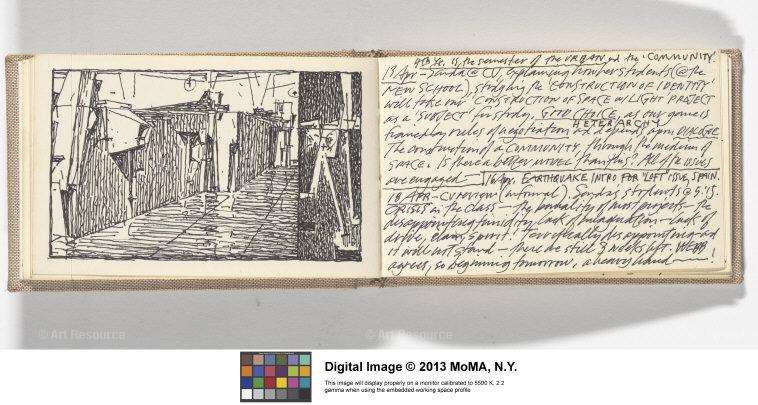 4th Yr. is the semester of the URBAN and the 'COMMUNITY'.
18 Apr - Sanda @ CU, explaining how her students (@ the
NEW SCHOOL), studying the 'CONSTRUCTION OF IDENTITY'
will take our 'CONSTRUCTION OF SPACE W/LIGHT PROJECT
as a 'SUBJECT' for study. GOOD CHOICE, as our game is
HETERARCHY
framed by rules of negotiation and depends upon DIALOGUE.
The construction of a COMMUNITY, through the medium of
SPACE. Is there a better model than this? All of the issues
are engaged 16 Apr. EARTHQUAKE INTRO FOR 'LOFT' ISSUE, SPAIN.
18 APR - CU review (informal), Sanda's students @ 5:15.
CRISIS in the class - the banality of most projects - the
disappointing timidity, lack of imagination - lack of
drive, élan, spirit! Terrifically disappointing and
it will not stand - there are still 3 weeks left. WEBB
agrees, so beginning tomorrow, a heavy hand !
© Art Resource
© Art Resource
Digital Image © 2013 MoMA, N.Y.
This image will display properly on a monitor calibrated to 5500 K, 2.2
gamma when using the embedded working space profile